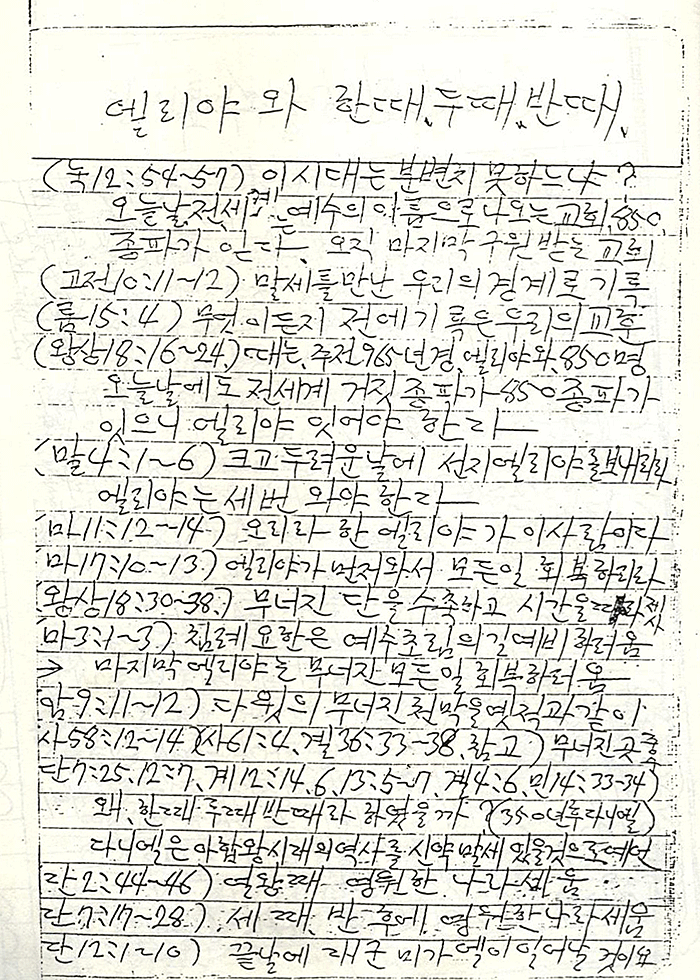 엘리야 와 한때, 두때, 반때,
(눅12:54~57) 이시대는 분변치 못하느냐?
오늘날 전세계는 예수의 이름으로 나오는 교회, 850
종파가 있다. 오직 마지막 구원 받는 교회
(고전10:11~12) 말세를 만난 우리의 경계로 기록
(롬15:4) 무엇이든지 전에 기록은 우리의 교훈
(왕상18:16~24,) 때는, 주전 965년경, 엘리야와, 850명
오늘날에도 전세계 거짓 종파가 850 종파가
있으니 엘리야 있어야 한다
(말4:1~6) 크고 두려운날에 선지 엘리야를 보내리라
엘리야는 세번 와야 한다
(마11:12~14) 오리라 한 엘리야가 이사람이다
(마17:10~13) 엘리야가 먼저와서 모든일 회복하리라
(왕상18:30~38,) 무너진 단을 수축하고 시간을
(마3:1~3) 침례 요한은 예수초림의 길예비하러옴
→ 마지막 엘리야는 무너진 모든일 회복하러 옴
암9:11~12) 다윗의 무너진 천막을 옛적과 같이
사58:12~14)(사61:4, 겔36:33~38, 참고) 무너진곳
단7:25, 12:7, 계12:14, 6, 13:5~7, 겔4:6, 민14:33~34)
왜, 한때 두때 반때라 하였을까?(350년후 다니엘)
다니엘은 아합왕시대의 역사를 신약 말세 있을것으로 예언
단2:44~46) 열왕때 영원한 나라 세움
단7:17~28) 세 때, 반 후에, 영원한 나라 세움
단12:1~10) 끝날에 대군 미가엘이 일어날 것이요